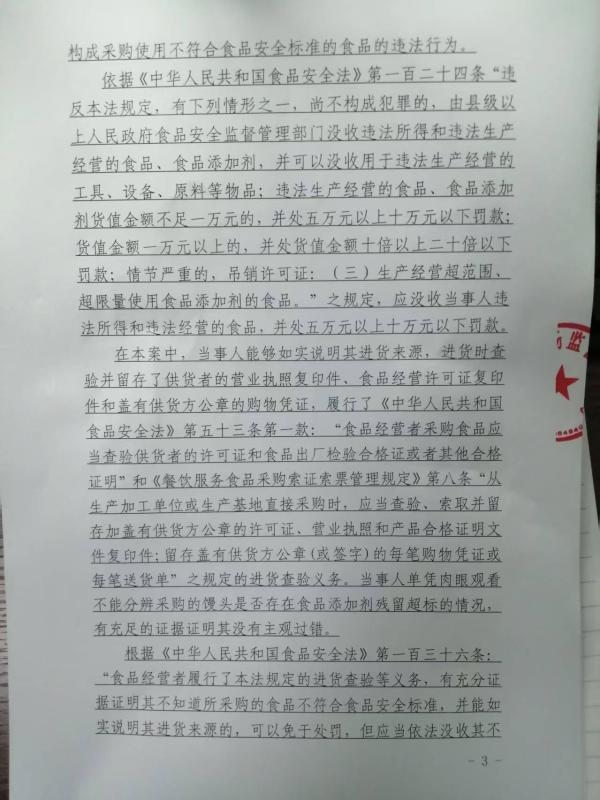 构成采购使用不符合食品安全标准的食品的违法行为。
依据《中华人民共和国食品安全法》第一百二十四条“违
反本法规定，有下列情形之一，尚不构成犯罪的，由县级以
上人民政府食品安全监督管理部门没收违法所得和违法生产
经营的食品、食品添加剂，并可以没收用于违法生产经营的
工具、设备、原料等物品；违法生产经营的食品、食品添加
剂货值金额不足一万元的，并处五万元以上十万元以下罚款；
货值金额一万元以上的，并处货值金额十倍以上二十倍以下
罚款；情节严重的，吊销许可证：（三）生产经营超范围、
超限量使用食品添加剂的食品。”之规定，应没收当事人违
法所得和违法经营的食品，并处五万元以上十万元以下罚款。
在本案中，当事人能够如实说明其进货来源，进货时查
验并留存了供货者的营业执照复印件、食品经营许可证复印
件和盖有供货方公章的购物凭证，履行了《中华人民共和国
食品安全法》第五十三条第一款：“食品经营者采购食品应
当查验供货者的许可证和食品出厂检验合格证或者其他合格
证明”和《餐饮服务食品采购索证索票管理规定》第八条“从
生产加工单位或生产基地直接采购时，应当查验、索取并留
存加盖有供货方公章的许可证、营业执照和产品合格证明文
件复印件；留存盖有供货方公章（或签字）的每笔购物凭证或
每笔送货单”之规定的进货查验义务。当事人单凭肉眼观看
不能分辨采购的馒头是否存在食品添加剂残留超标的情况，
有充足的证据证明其没有主观过错。
根据《中华人民共和国食品安全法》第一百三十六条：
“食品经营者履行了本法规定的进货查验等义务，有充分证
据证明其不知道所采购的食品不符合食品安全标准，并能如
实说明其进货来源的，可以免于处罚，但应当依法没收其不
- 3 -